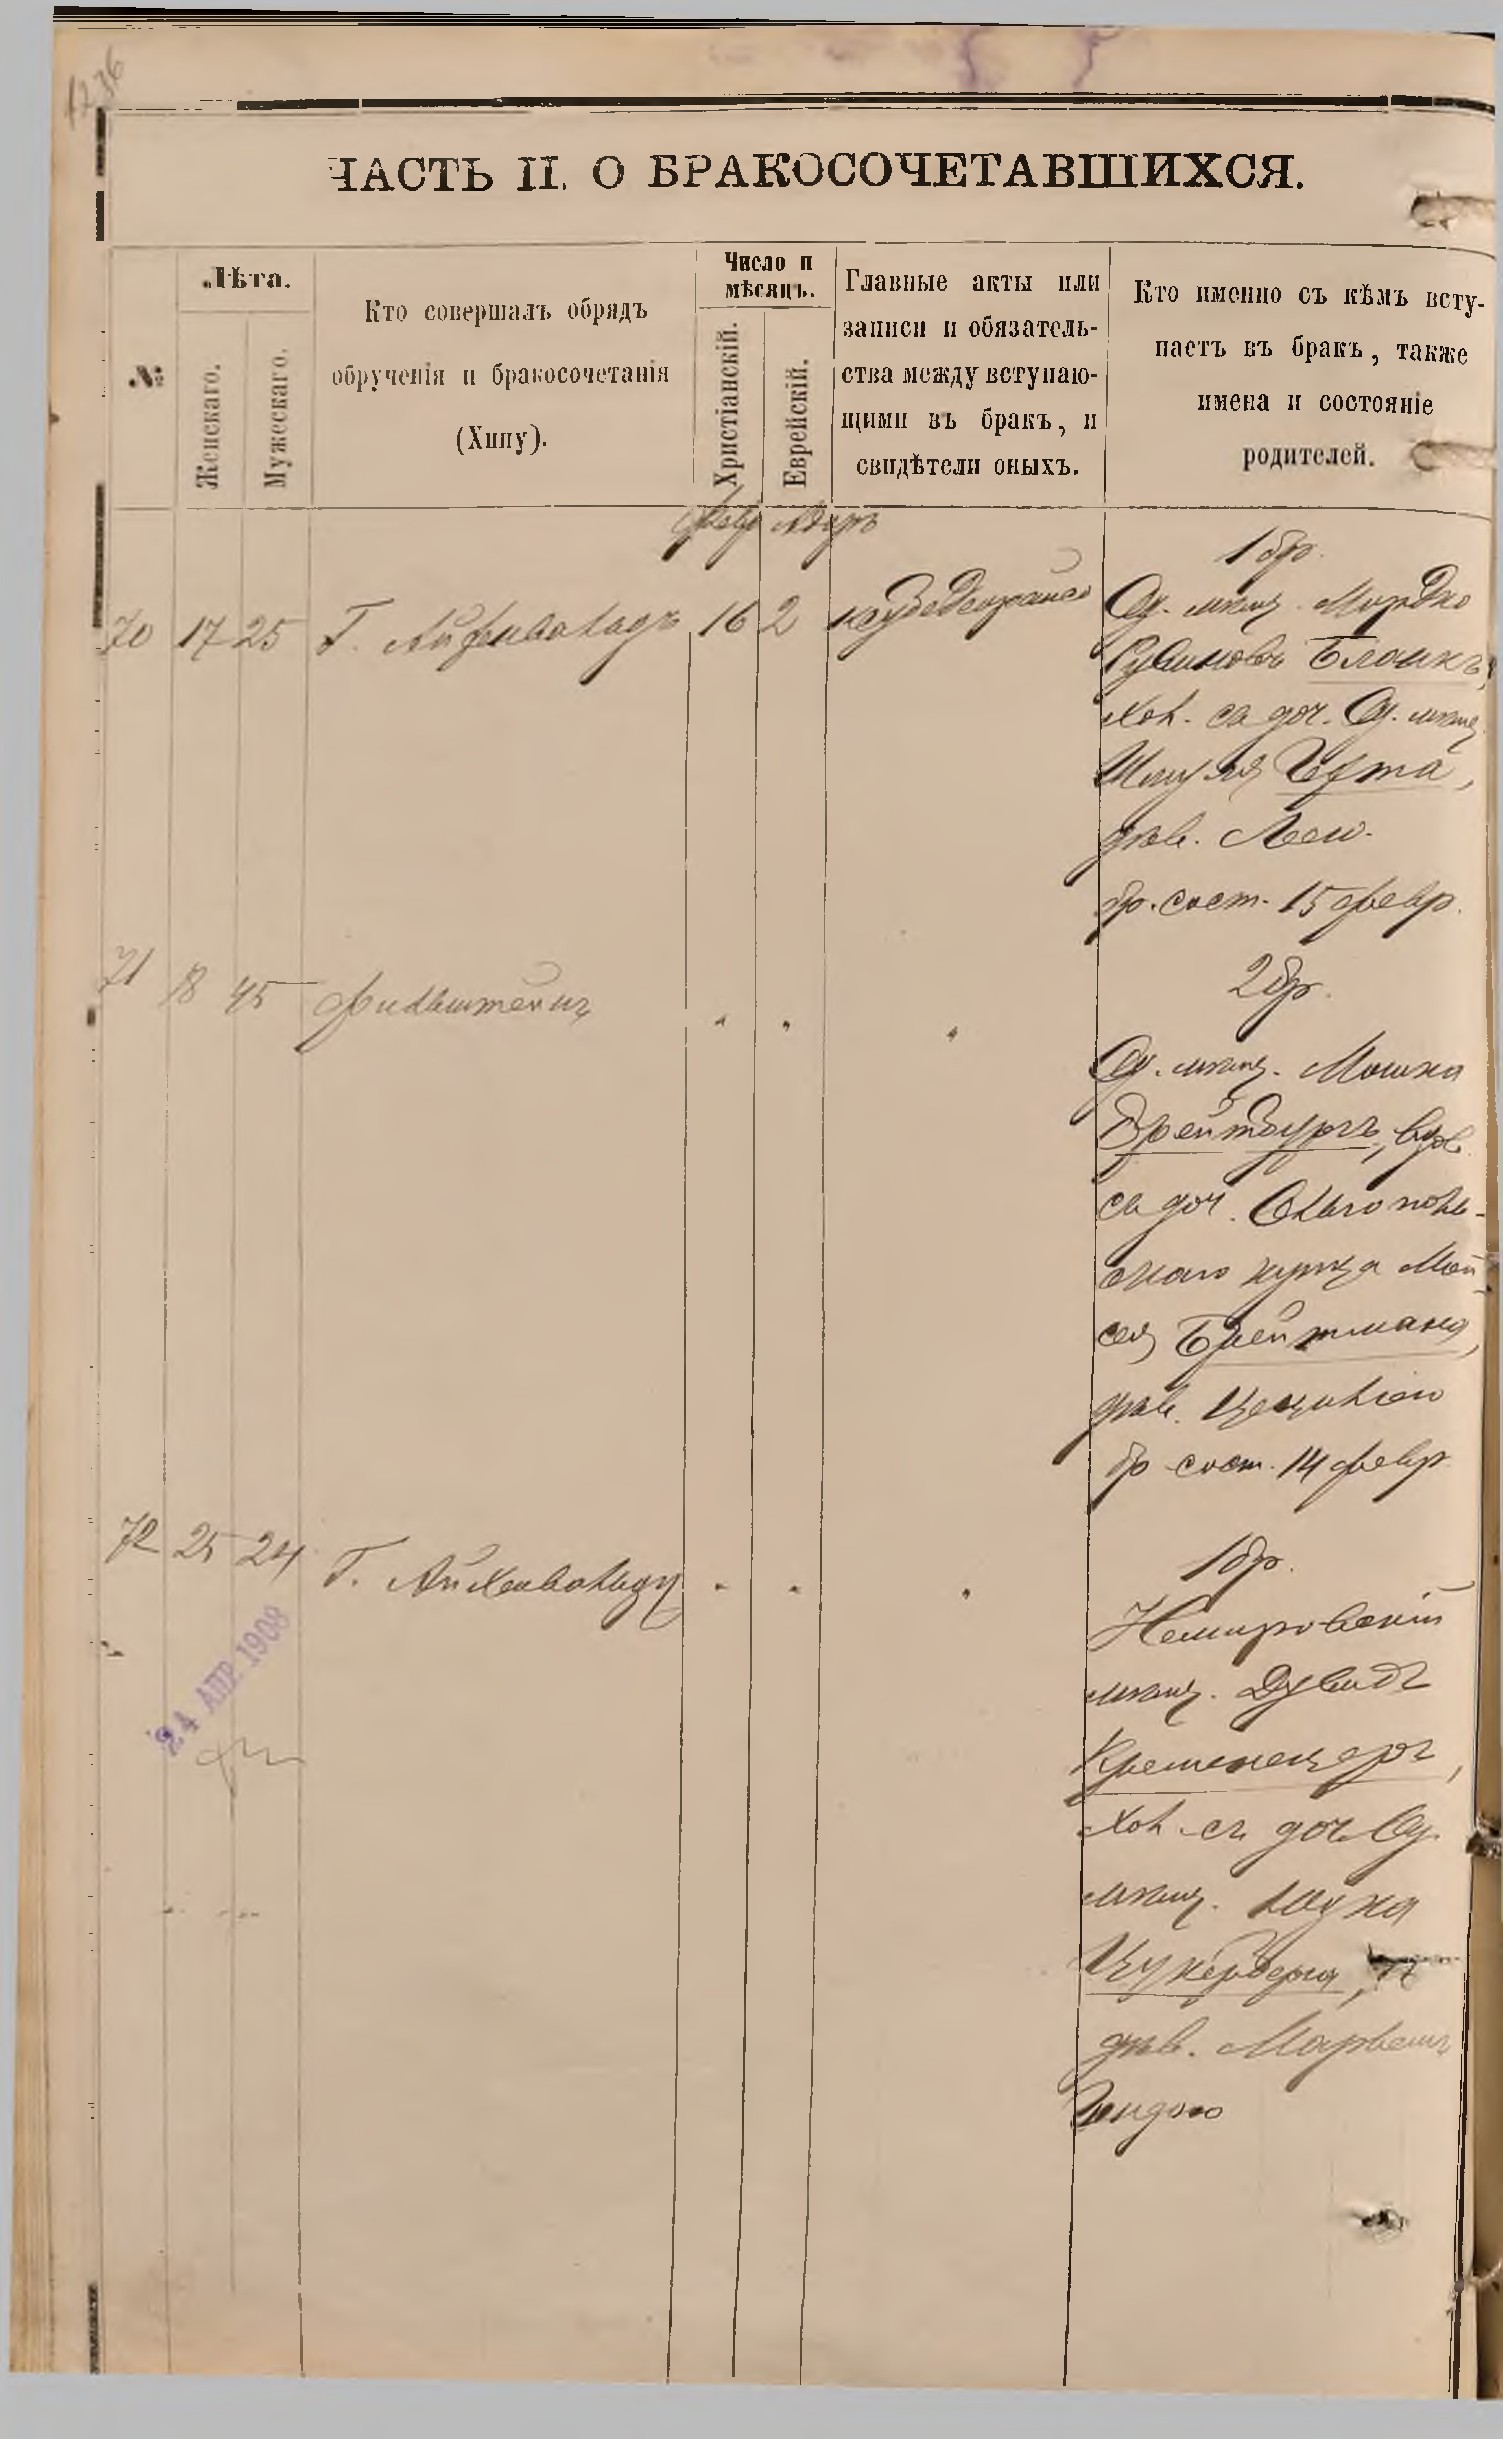 1236
ЧАСТЬ II. О БРАКОСОЧЕТАВШИХСЯ.
№
Лѣта.
Женскаго.
Мужескаго.
Кто совершалъ обрядъ
обрученія и бракосочетанія
(Хипу).
Число и
мѣсяцъ.
Христіанскій.
Еврейскій.
Главные акты или
записи и обязатель-
ства между вступаю-
щими въ бракъ, и
свидѣтели оныхъ.
Кто именно съ кѣмъ всту-
паетъ въ бракъ, также
имена и состояніе
родителей.
Февр Адаръ
70 17 25 Г. Айхенвальдъ 16 2
1 бр.
Од. мѣщ. Мордко
Рувиновъ Бланкъ,
хол. съ доч. Од. мѣщ.
Шмуля Герта,
дѣв. Леею.
бр. сост. 15 февр.
71 18 45 Финкельштейнъ " " "
2 бр.
Од. мѣщ. Мошко
Вретбургъ, вдов.
съ доч.
скаго купца Мой-
сея Брейтмана,
дѣв. Цецилiею
бр. сост. 14 февр.
72 25 24 Г. Айхенвальдъ " " "
1 бр.
Немировскій
мѣщ. Дувидъ
Кременецеръ,
хол. съ доч. Од.
мѣщ. Ицка
Цукерберга,
дѣв.
Гендою
24 АПР 1908